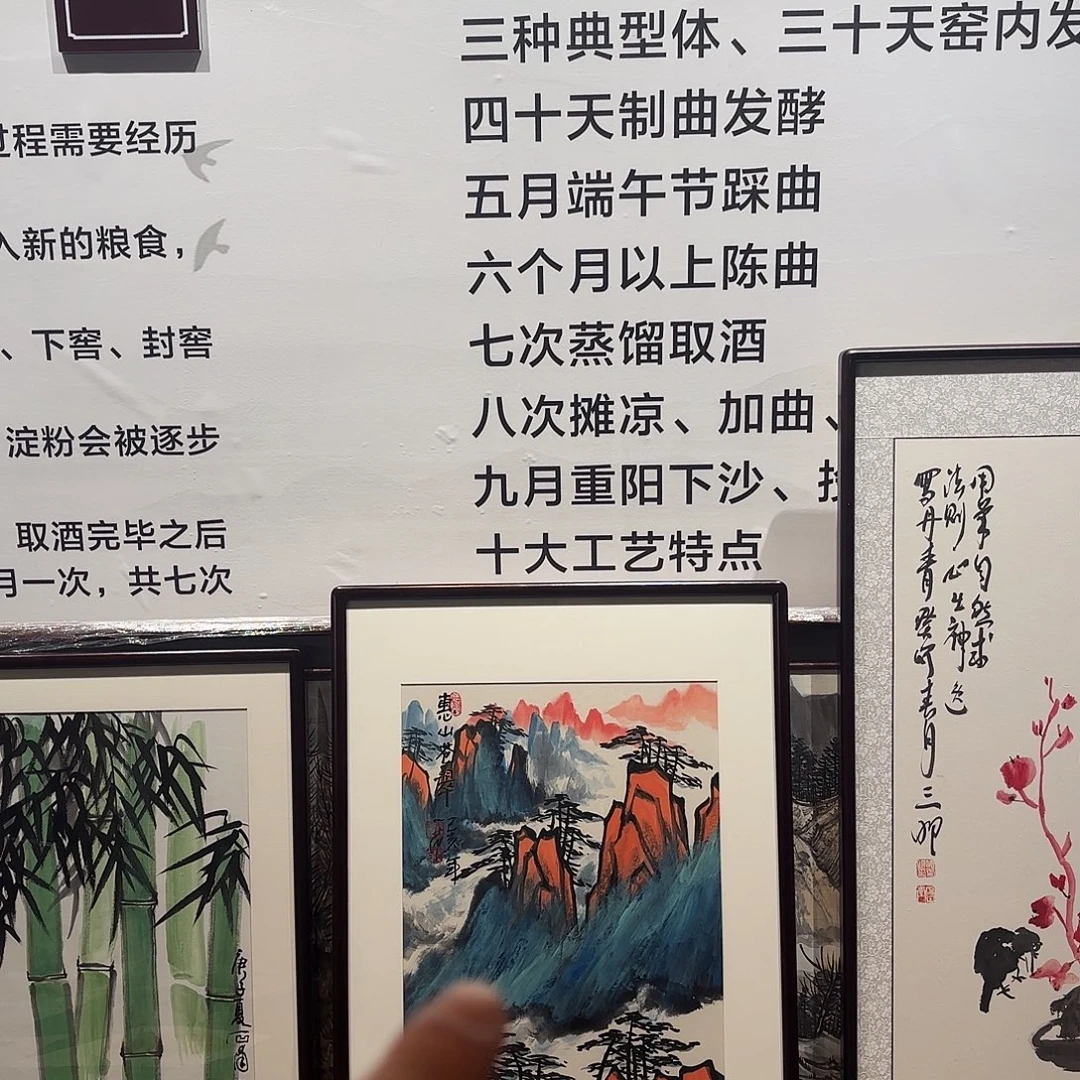 过程需要经历
入新的粮食，
、下窖、封窖
淀粉会被逐步
取酒完毕之后
月一次，共七次
三种典型体、三十天窑内发
四十天制曲发酵
五月端午节踩曲
六个月以上陈曲
七次蒸馏取酒
八次摊凉、加曲、
九月重阳下沙、
十大工艺特点
用笔自然求
法则心生神逸
写丹青癸卯春月三卯
惠山
庚子夏